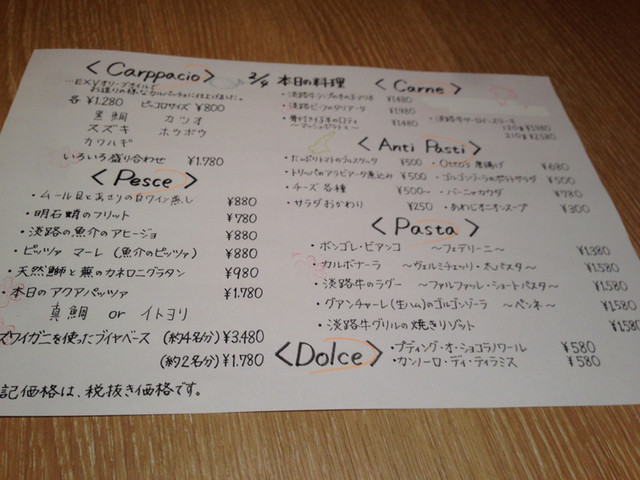 <Carppacio>
…EXVオリーブオイルで
お造りの様なカルパッチョに仕上げました。
各 ¥1.280 ピーコロサイズ ¥800
黒鯛 カツオ
スズキ ホウボウ
カワハギ
いろいろ盛り合わせ ¥1.780
<Pesce>
・ムール貝とあさりの白ワイン蒸し ¥880
・明石蛸のフリット ¥780
・淡路の魚介のアヒージョ ¥880
・ピッツァ マーレ (魚介のピッツァ) ¥880
・天然鰤と蕪のカネロニグラタン ¥980
・本日のアクアパッツァ ¥1.780
真鯛 or イトヨリ
ズワイガニを使ったブイヤベース (約4名分) ¥3.480
(約2名分) ¥1.780
記価格は、税抜き価格です。
2/4 本日の料理
<Carne>
¥1480
・淡路ビーフのタリアータ ¥1980
¥1480
〜マッシュポテト〜
・淡路牛サーロインステーキ
120g ¥1980
210g ¥2580
<Anti Pasti>
・たっぷりトマトのブルスケッタ ¥500
・トリッパのアラビアータ煮込み ¥500
・チーズ 各種 ¥500〜
・サラダおかわり ¥250
・Otto's 唐揚げ ¥680
・ゴルゴンゾーラのポテトサラダ ¥500
・バーニャカウダ ¥780
・あわじオニオンスープ ¥300
<Pasta>
・ボンゴレ・ビアンコ 〜フェデリーニ〜 ¥1380
・カルボナーラ 〜ヴェルミチェッリ・太パスタ〜 ¥1580
・淡路牛のラグー 〜ファルファッレ・ショートパスタ〜 ¥1580
・グアンチャーレ(生ハム)のゴルゴンゾーラ 〜ペンネ〜 ¥1580
・淡路牛グリルの焼きリゾット ¥1580
<Dolce>
・プディング・オ・ショコラノワール ¥580
・カンノーロ・ディ・ティラミス ¥580